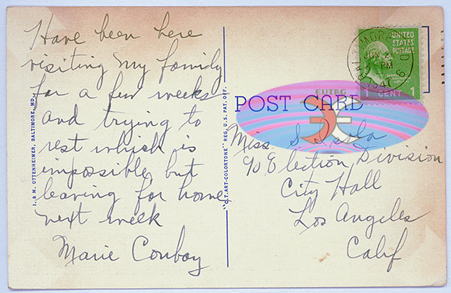 Have been here
visiting my family
for a few weeks
and trying to
rest which is
impossible, but
leaving for home
next week
Marie Conboy
I. & M. OTTENHEIMER, BALTIMORE, MD.
"C.T. ART-COLORTONE" REG. U.S. PAT. OFF.
UNITED STATES
POSTAGE
1 CENT 1
POST CARD
Miss
% Election Division
City Hall
Los Angeles
Calif